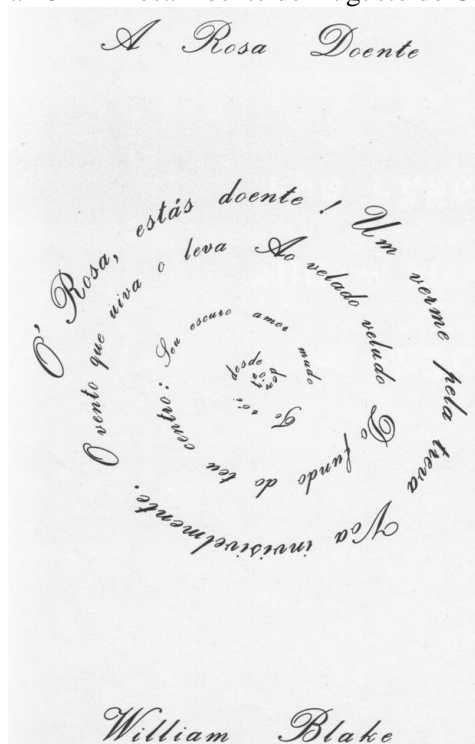 A Rosa Doente
O' Rosa, estás doente!
Um verme pela treva
Voa invisivelmente.
O vento que uiva o leva
Ao velado veludo
Do fundo do teu centro:
Seu escuro amor mudo
Te rói desde
den
tro
William Blake